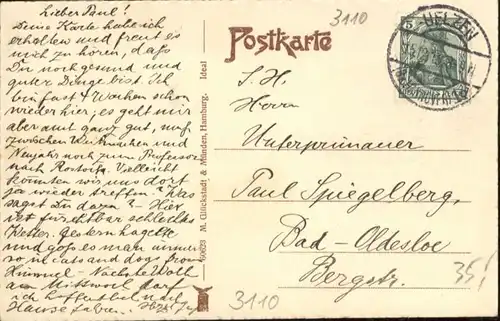 Lieber Paul!
Deine Karte habe ich
erhalten und freut es
mich zu hören, daß
Du noch gesund und
guter Dinge bist. Ich
bin fast 4 Wochen schon
wieder hier; es geht mir
aber ganz gut, muß
zwischen Weihnachten und
Neujahr noch zum Professor
nach Rostock. Vielleicht
könnten wir uns dort
ja wieder treffen? Was
sagst Du dazu? - Hier
ist furchtbar schlechtes
Wetter. Gestern hagelte
und goß es man immer
so in cats and dogs from
Himmel - Nächste Woche
am Mittwoch darf
ich hoffentlich nach
Hause fahren.
60623 M. Glückstadt & Münden, Hamburg. Ideal
3110
Postkarte
5
UELZEN
S. H.
Herrn
Unterprimaner
Paul Spiegelberg,
Bad-Oldesloe
Bergstr.
35!
3110